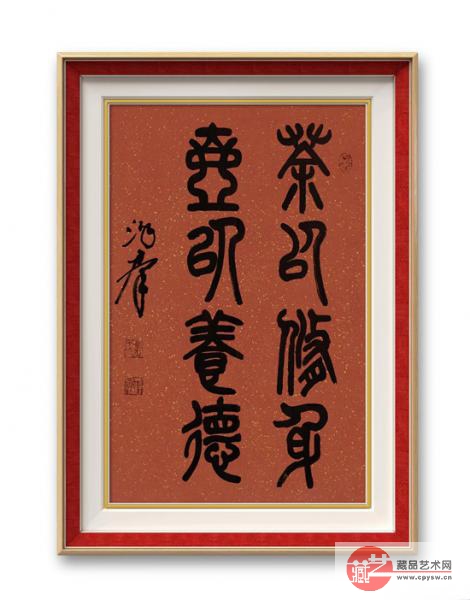 茶以修身
壺以養德
藏艺
藏品艺术网
www.cpysw.cn